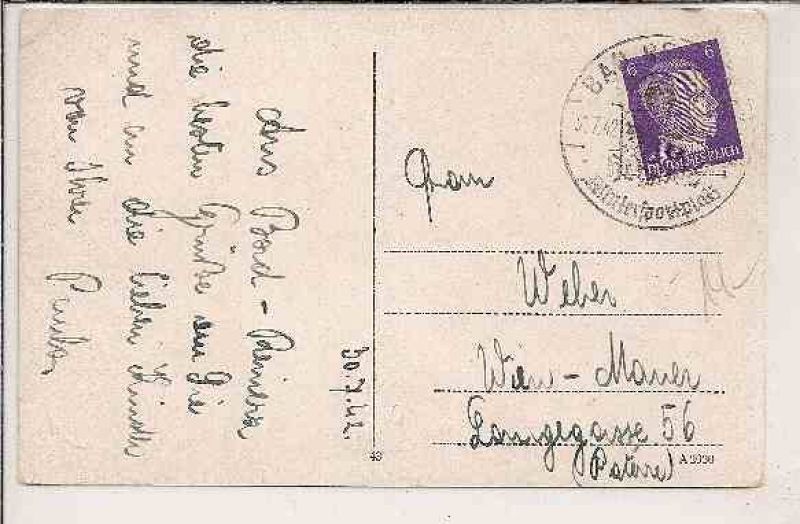 Aus Bad-Reinerz
die besten Grüße an Sie
und an die lieben Kinder
von Ihrer
30.7.42.
Frau
Weber
Wien-Mauer
Langegasse 56
(Paterre)
49
A 3930
6 6
DEUTSCHES REICH
BAD
Wintersportplatz